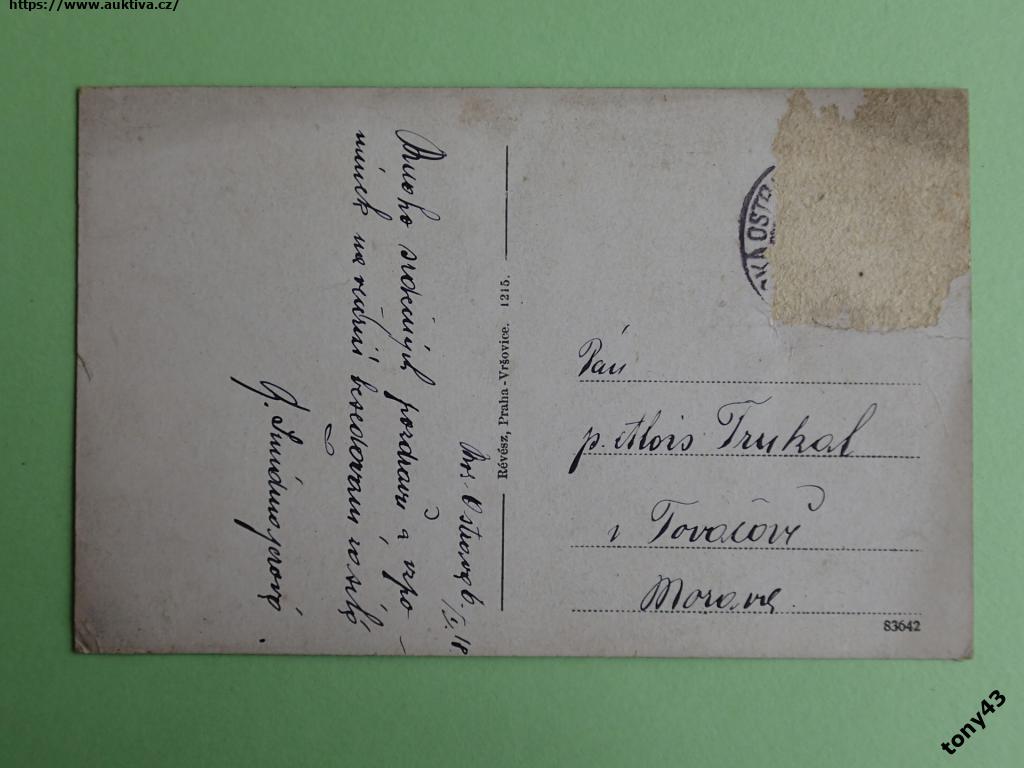 https://www.auktiva.cz/
Mor. Ostrava 6/I. 18.
Mnoho srdečných pozdravů a vzpo-
mínek na zdejší besedování
J.
Révész, Praha-Vršovice. 1215.
KÁ OSTR
Pán
p. Alois Trukal
v Tovačově
Morava.
83642
tony43